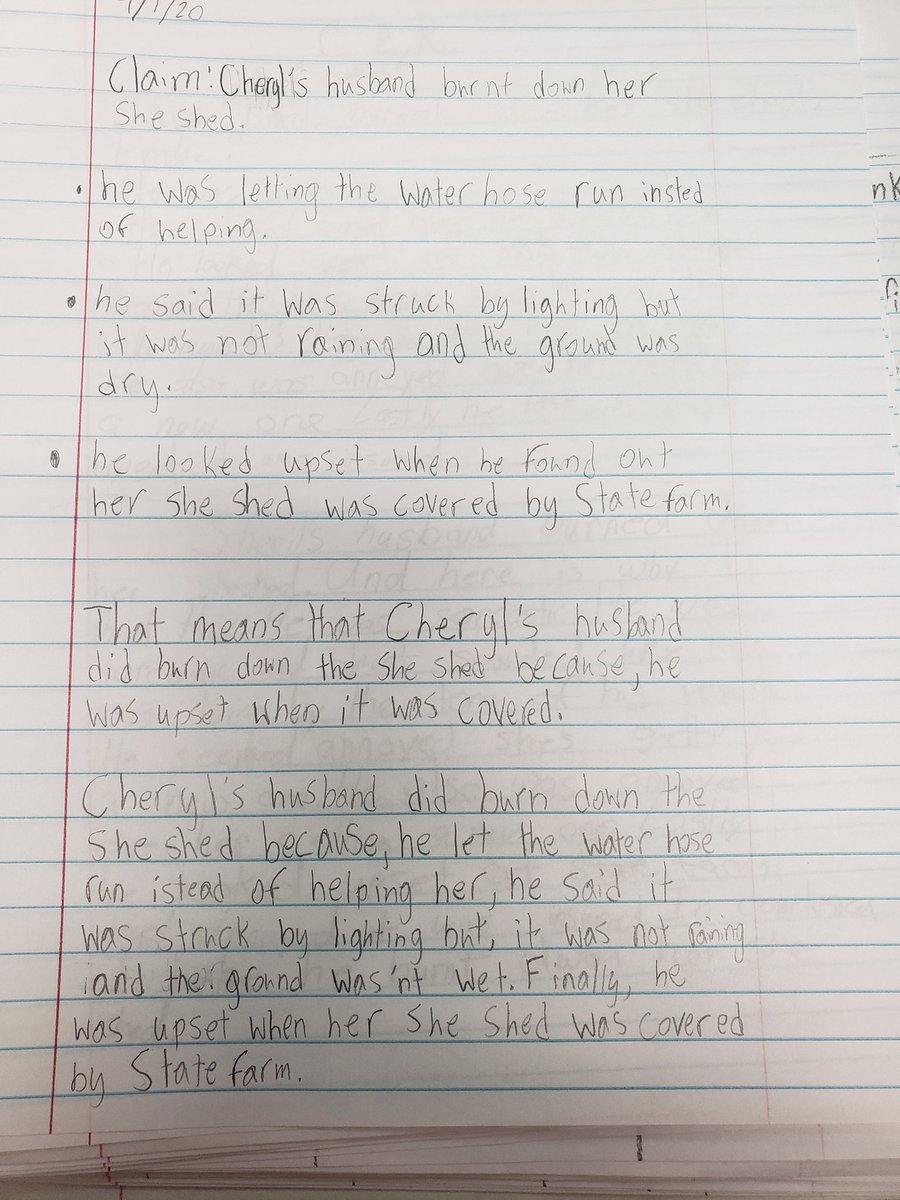 /1/20
Claim: Cheryl's husband burnt down her
She shed.
• he was letting the water hose run insted
of helping.
• he said it was struck by lighting but
it was not raining and the ground was
dry.
• he looked upset when he found out
her she shed was covered by State farm.
That means that Cheryl's husband
did burn down the She shed because, he
was upset when it was covered.
Cheryl's husband did burn down the
She shed because, he let the water hose
run istead of helping her, he said it
was struck by lighting but, it was not raining
and the ground was'nt wet. Finally, he
was upset when her She Shed was covered
by State farm.